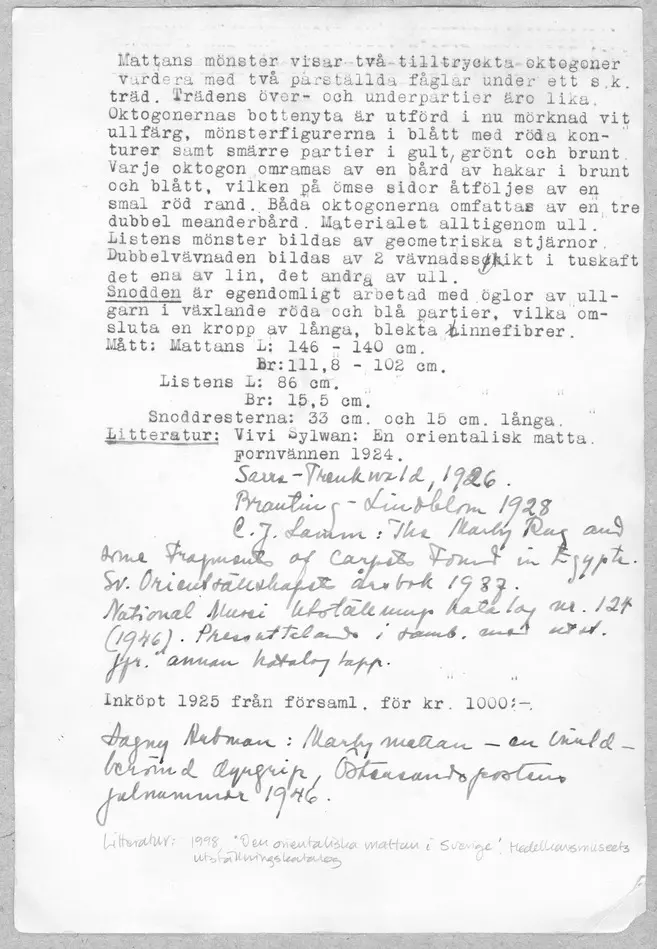 Mattans mönster visar två tilltryckta oktogoner
vardera med två parställda fåglar under ett s.k.
träd. Trädens över- och underpartier äro lika.
Oktogonernas bottenyta är utförd i nu mörknad vit
ullfärg, mönsterfigurerna i blått med röda kon-
turer samt smärre partier i gult, grönt och brunt.
Varje oktogon omramas av en bård av hakar i brunt
och blått, vilken på ömse sidor åtföljes av en
smal röd rand. Båda oktogonerna omfattas av en tre
dubbel meanderbård. Materialet alltigenom ull.
Listens mönster bildas av geometriska stjärnor.
Dubbelvävnaden bildas av 2 vävnadsskikt i tuskaft
det ena av lin, det andra av ull.
Snodden är egendomligt arbetad med öglor av ull-
garn i växlande röda och blå partier, vilka om-
sluta en kropp av långa, blekta linnefibrer.
Mått: Mattans L: 146 - 140 cm.
Br: 111,8 - 102 cm.
Listens L: 86 cm.
Br: 15,5 cm.
Snoddresterna: 33 cm. och 15 cm. långa.
Litteratur: Vivi Sylwan: En orientalisk matta.
Fornvännen 1924.
Sarre-Trenkwald, 1926.
Brauting - Lindblom 1928
C. J. Lamm: The Marby Rug and
some Fragments of Carpets Found in Egypt.
Sv. Orientsällskapets årsbok 1937.
National Musei Utställnings katalog nr. 124
(1946). i samb. med utst.
jfr. annan katalog
Inköpt 1925 från församl. för kr. 1000:-.
Dagny Arbman: Marbymattan - en värld-
berömd dyrgrip, Östersundspostens
julnummer 1946.
Litteratur: 1998 "Den orientaliska mattan i Sverige", Medelhavsmuseets
utställningskatalog